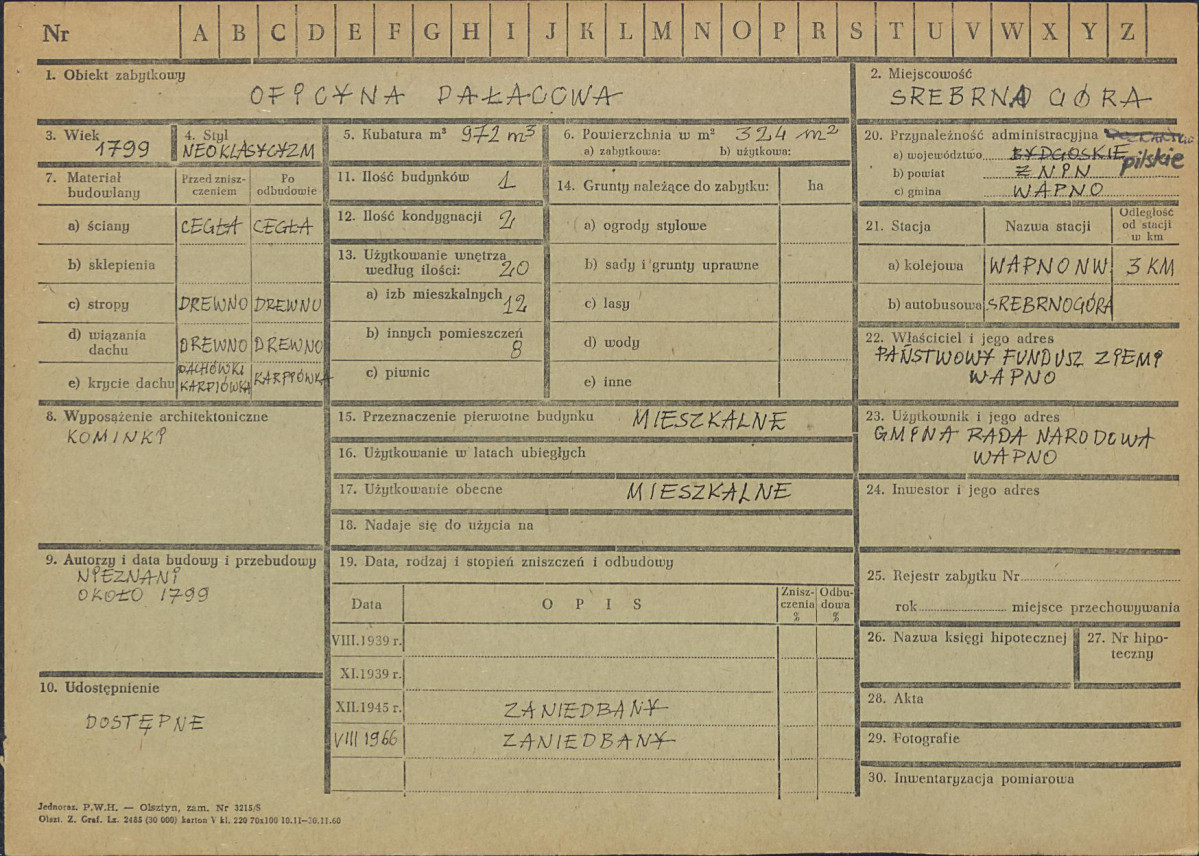 Nr A B C D E F G H I J K L M N O P R S T U V W X Y Z
1. Obiekt zabytkowy
OFICYNA PAŁACOWA
2. Miejscowość
SREBRNA GÓRA
3. Wiek
1799
4. Styl
NEOKLASYCYZM
5. Kubatura m³ 972 m3
6. Powierzchnia w m² 324 m2
a) zabytkowa: b) użytkowa:
20. Przynależność administracyjna
a) województwo BYDGOSKIE pilskie
b) powiat ŻNIN
c) gmina WAPNO
7. Materiał budowlany
Przed zniszczeniem
Po odbudowie
a) ściany CEGŁA CEGŁA
b) sklepienia
c) stropy DREWNO DREWNO
d) wiązania dachu DREWNO DREWNO
e) krycie dachu DACHÓWKI KARPIÓWKA KARPIÓWKA
11. Ilość budynków 1
12. Ilość kondygnacji 2
13. Użytkowanie wnętrza
według ilości: 20
a) izb mieszkalnych 12
b) innych pomieszczeń 8
c) piwnic
14. Grunty należące do zabytku: ha
a) ogrody stylowe
b) sady i grunty uprawne
c) lasy
d) wody
e) inne
21. Stacja Nazwa stacji Odległość od stacji w km
a) kolejowa WAPNO NW. 3 KM
b) autobusowa SREBRNOGÓRA
22. Właściciel i jego adres
PAŃSTWOWY FUNDUSZ ZIEMI
WAPNO
8. Wyposażenie architektoniczne
KOMINKI
15. Przeznaczenie pierwotne budynku MIESZKALNE
16. Użytkowanie w latach ubiegłych
17. Użytkowanie obecne MIESZKALNE
18. Nadaje się do użycia na
23. Użytkownik i jego adres
GMINA RADA NARODOWA
WAPNO
24. Inwestor i jego adres
9. Autorzy i data budowy i przebudowy
NIEZNANI
OKOŁO 1799
19. Data, rodzaj i stopień zniszczeń i odbudowy
Data O P I S Zniszczenia % Odbudowa %
VIII.1939 r.
XI.1939 r.
XII.1945 r. ZANIEDBANY
VIII 1966 ZANIEDBANY
25. Rejestr zabytku Nr
rok miejsce przechowywania
26. Nazwa księgi hipotecznej
27. Nr hipoteczny
10. Udostępnienie
DOSTĘPNE
28. Akta
29. Fotografie
30. Inwentaryzacja pomiarowa
Jednoraz. P.W.H. — Olsztyn, zam. Nr 3215/S
Olszt. Z. Graf. Lz. 2485 (30 000) karton V kl. 220 70x100 10.11—30.11.60